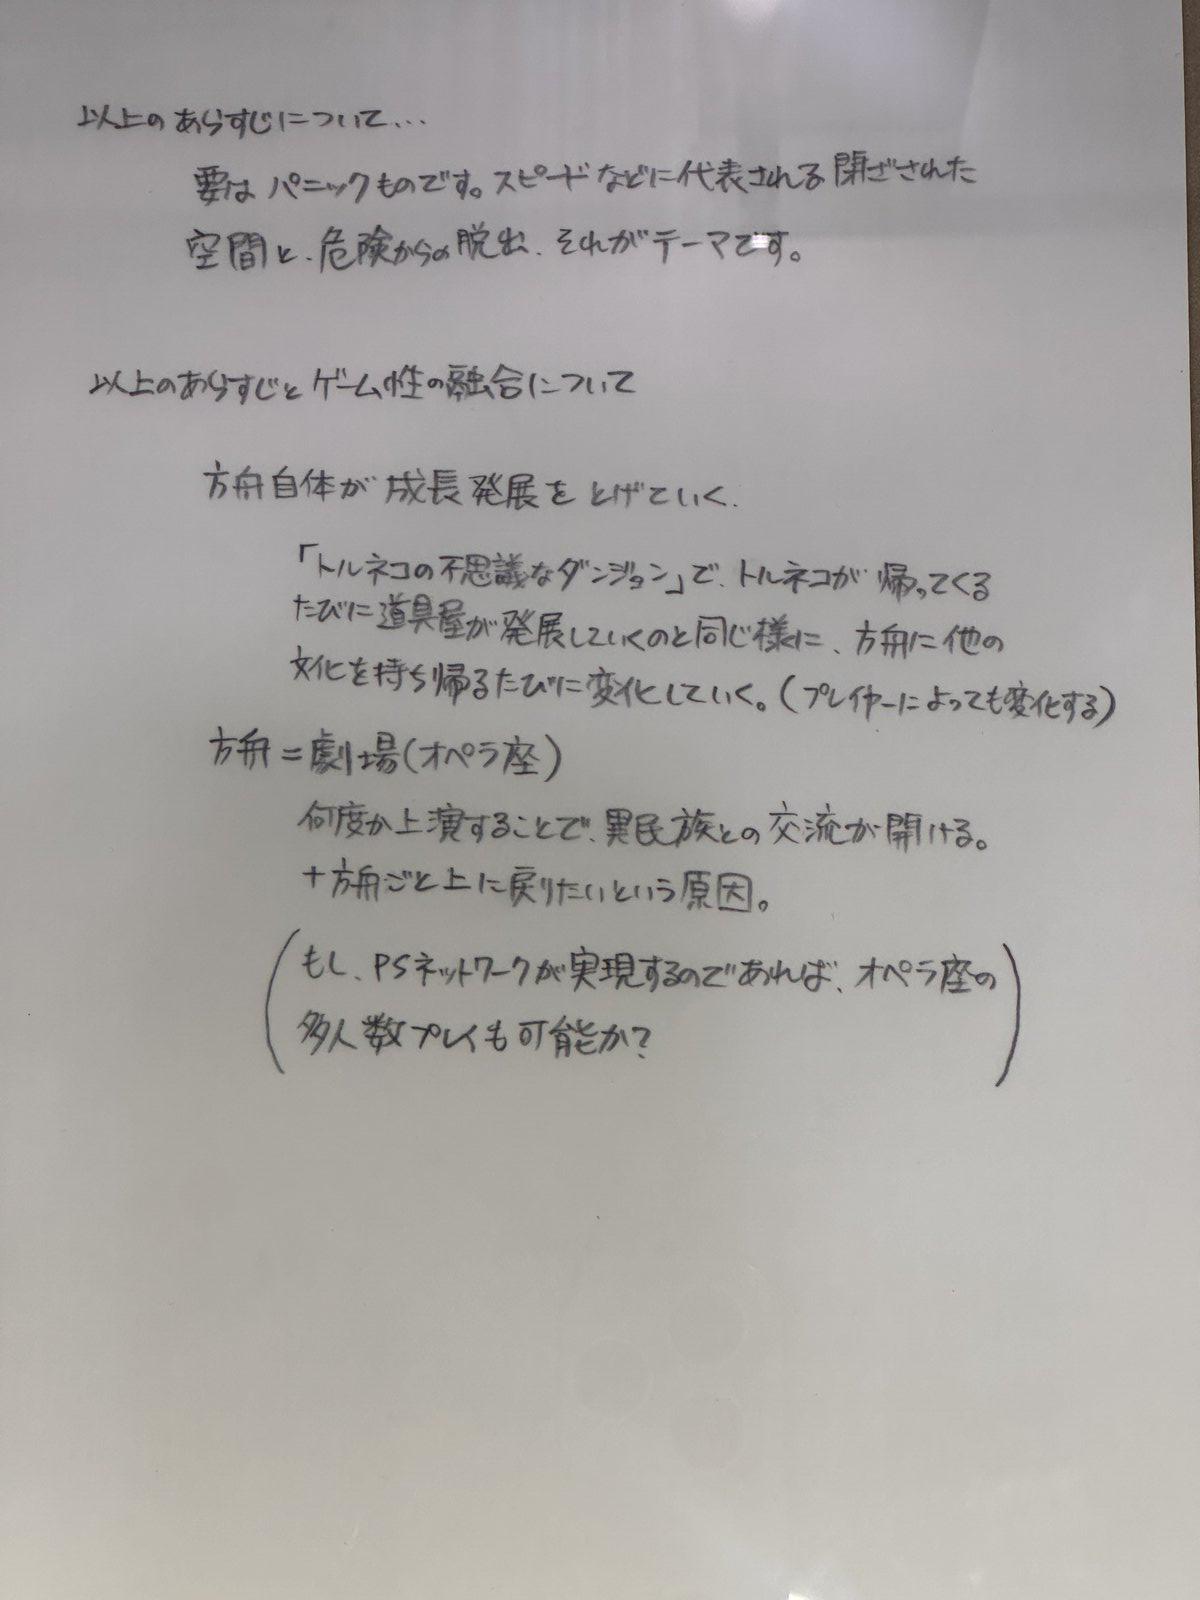 以上のあらすじについて...
要は パニックものです。スピードなどに代表される閉ざされた
空間と、危険からの脱出、それがテーマです。
以上のあらすじとゲーム性の融合について
方舟自体が成長発展をとげていく、
「トルネコの不思議なダンジョン」で、トルネコが帰ってくる
たびに道具屋が発展していくのと同じ様に、方舟に他の
文化を持ち帰るたびに変化していく。(プレイヤーによっても変化する)
方舟=劇場(オペラ座)
何度か上演することで、異民族との交流が開ける。
+方舟ごと上に戻りたいという原因。
(もし、PSネットワークが実現するのであれば、オペラ座の
多人数プレイも可能か?)